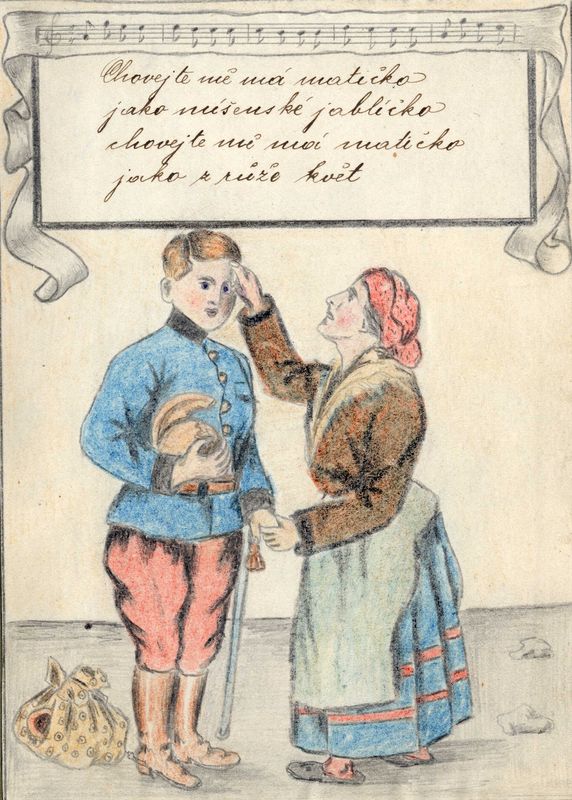 Chovejte mě má matičko
jako míšenské jablíčko
chovejte mě má matičko
jako z růže květ